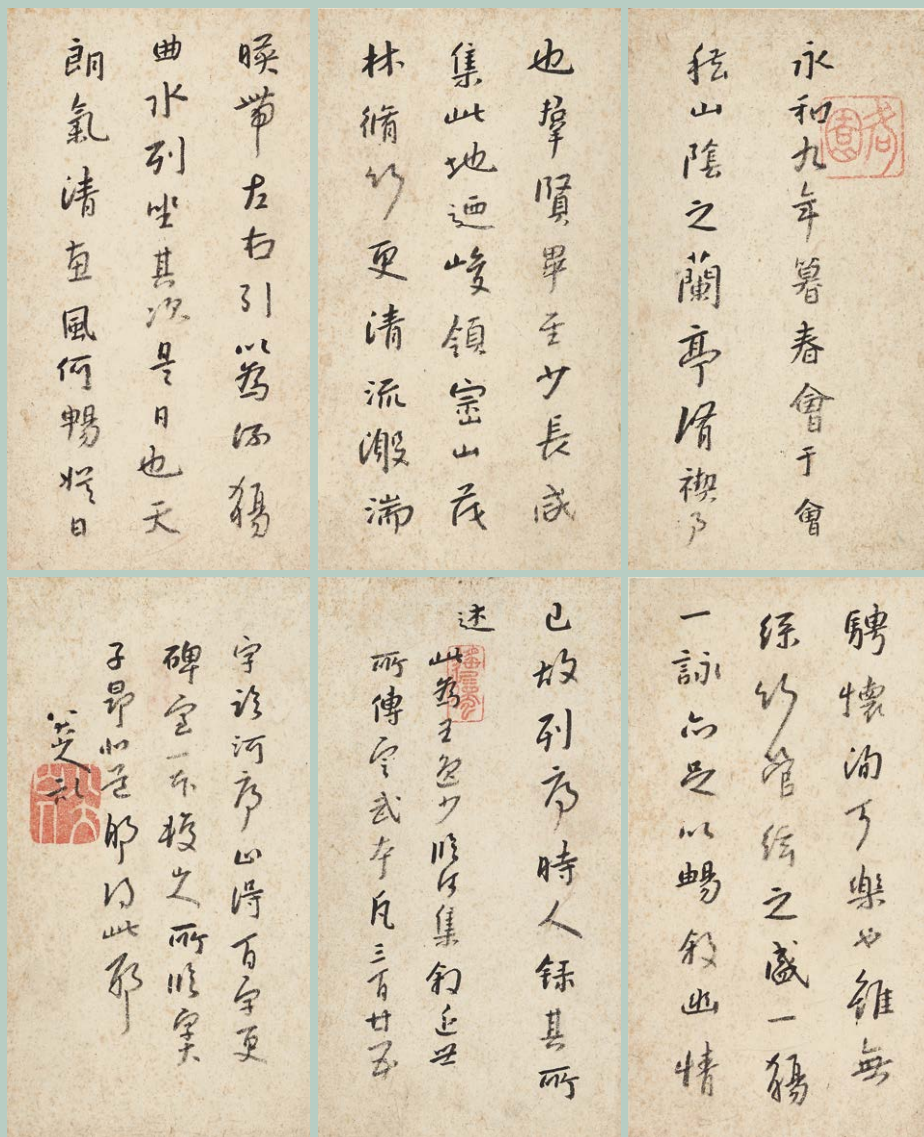 永和九年暮春會于會
稽山陰之蘭亭脩禊事
也群賢畢至少長咸
集此地迺峻領崇山茂
林脩竹更清流激湍
暎帶左右引以為流觴
曲水列坐其次是日也天
朗氣清惠風何暢娛目
騁懷洵可樂也雖無
絲竹管絃之盛一觴
一詠亦足以暢敘幽情
已故列序時人錄其所
述
此為王逸少臨河集敘近世
所傳定武本凡三百廿五
字臨河序止得百字更
碑一本所臨
子昂得此耶
八大山人記